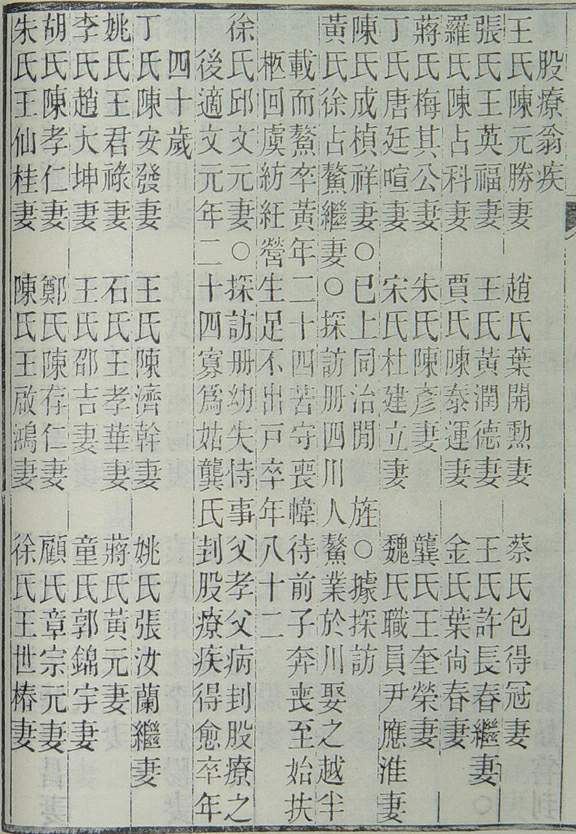 股療翁疾
王氏陳元勝妻　趙氏葉開勲妻　蔡氏包得冠妻
張氏王英福妻　王氏黃潤德妻　王氏許長春繼妻○
羅氏陳占科妻　賈氏陳泰運妻　金氏葉尙春妻
蔣氏梅其公妻　朱氏陳彥妻　龔氏王奎榮妻
丁氏唐廷暄妻　宋氏杜建立妻　魏氏職員尹應淮妻
陳氏成楨祥妻○已上同治閒　旌○據採訪
黃氏徐占鰲繼妻○採訪册四川人鰲業於川娶之越半
載而鰲卒黃年二十四苦守喪幃待前子奔喪至始扶
柩回虞紡紝營生足不出戸卒年八十二
徐氏邱文元妻○採訪册幼失侍事父孝父病刲股療之
後適文元年二十四寡爲姑龔氏刲股療疾得愈卒年
四十歲
丁氏陳安發妻　王氏陳濟幹妻　姚氏張汝蘭繼妻
姚氏王君祿妻　石氏王孝華妻　蔣氏黃元妻
李氏趙大坤妻　王氏邵吉妻　童氏郭錦宇妻
胡氏陳孝仁妻　鄭氏陳存仁妻　顧氏章宗元妻
朱氏王仙桂妻　陳氏王啟鴻妻　徐氏王世椿妻